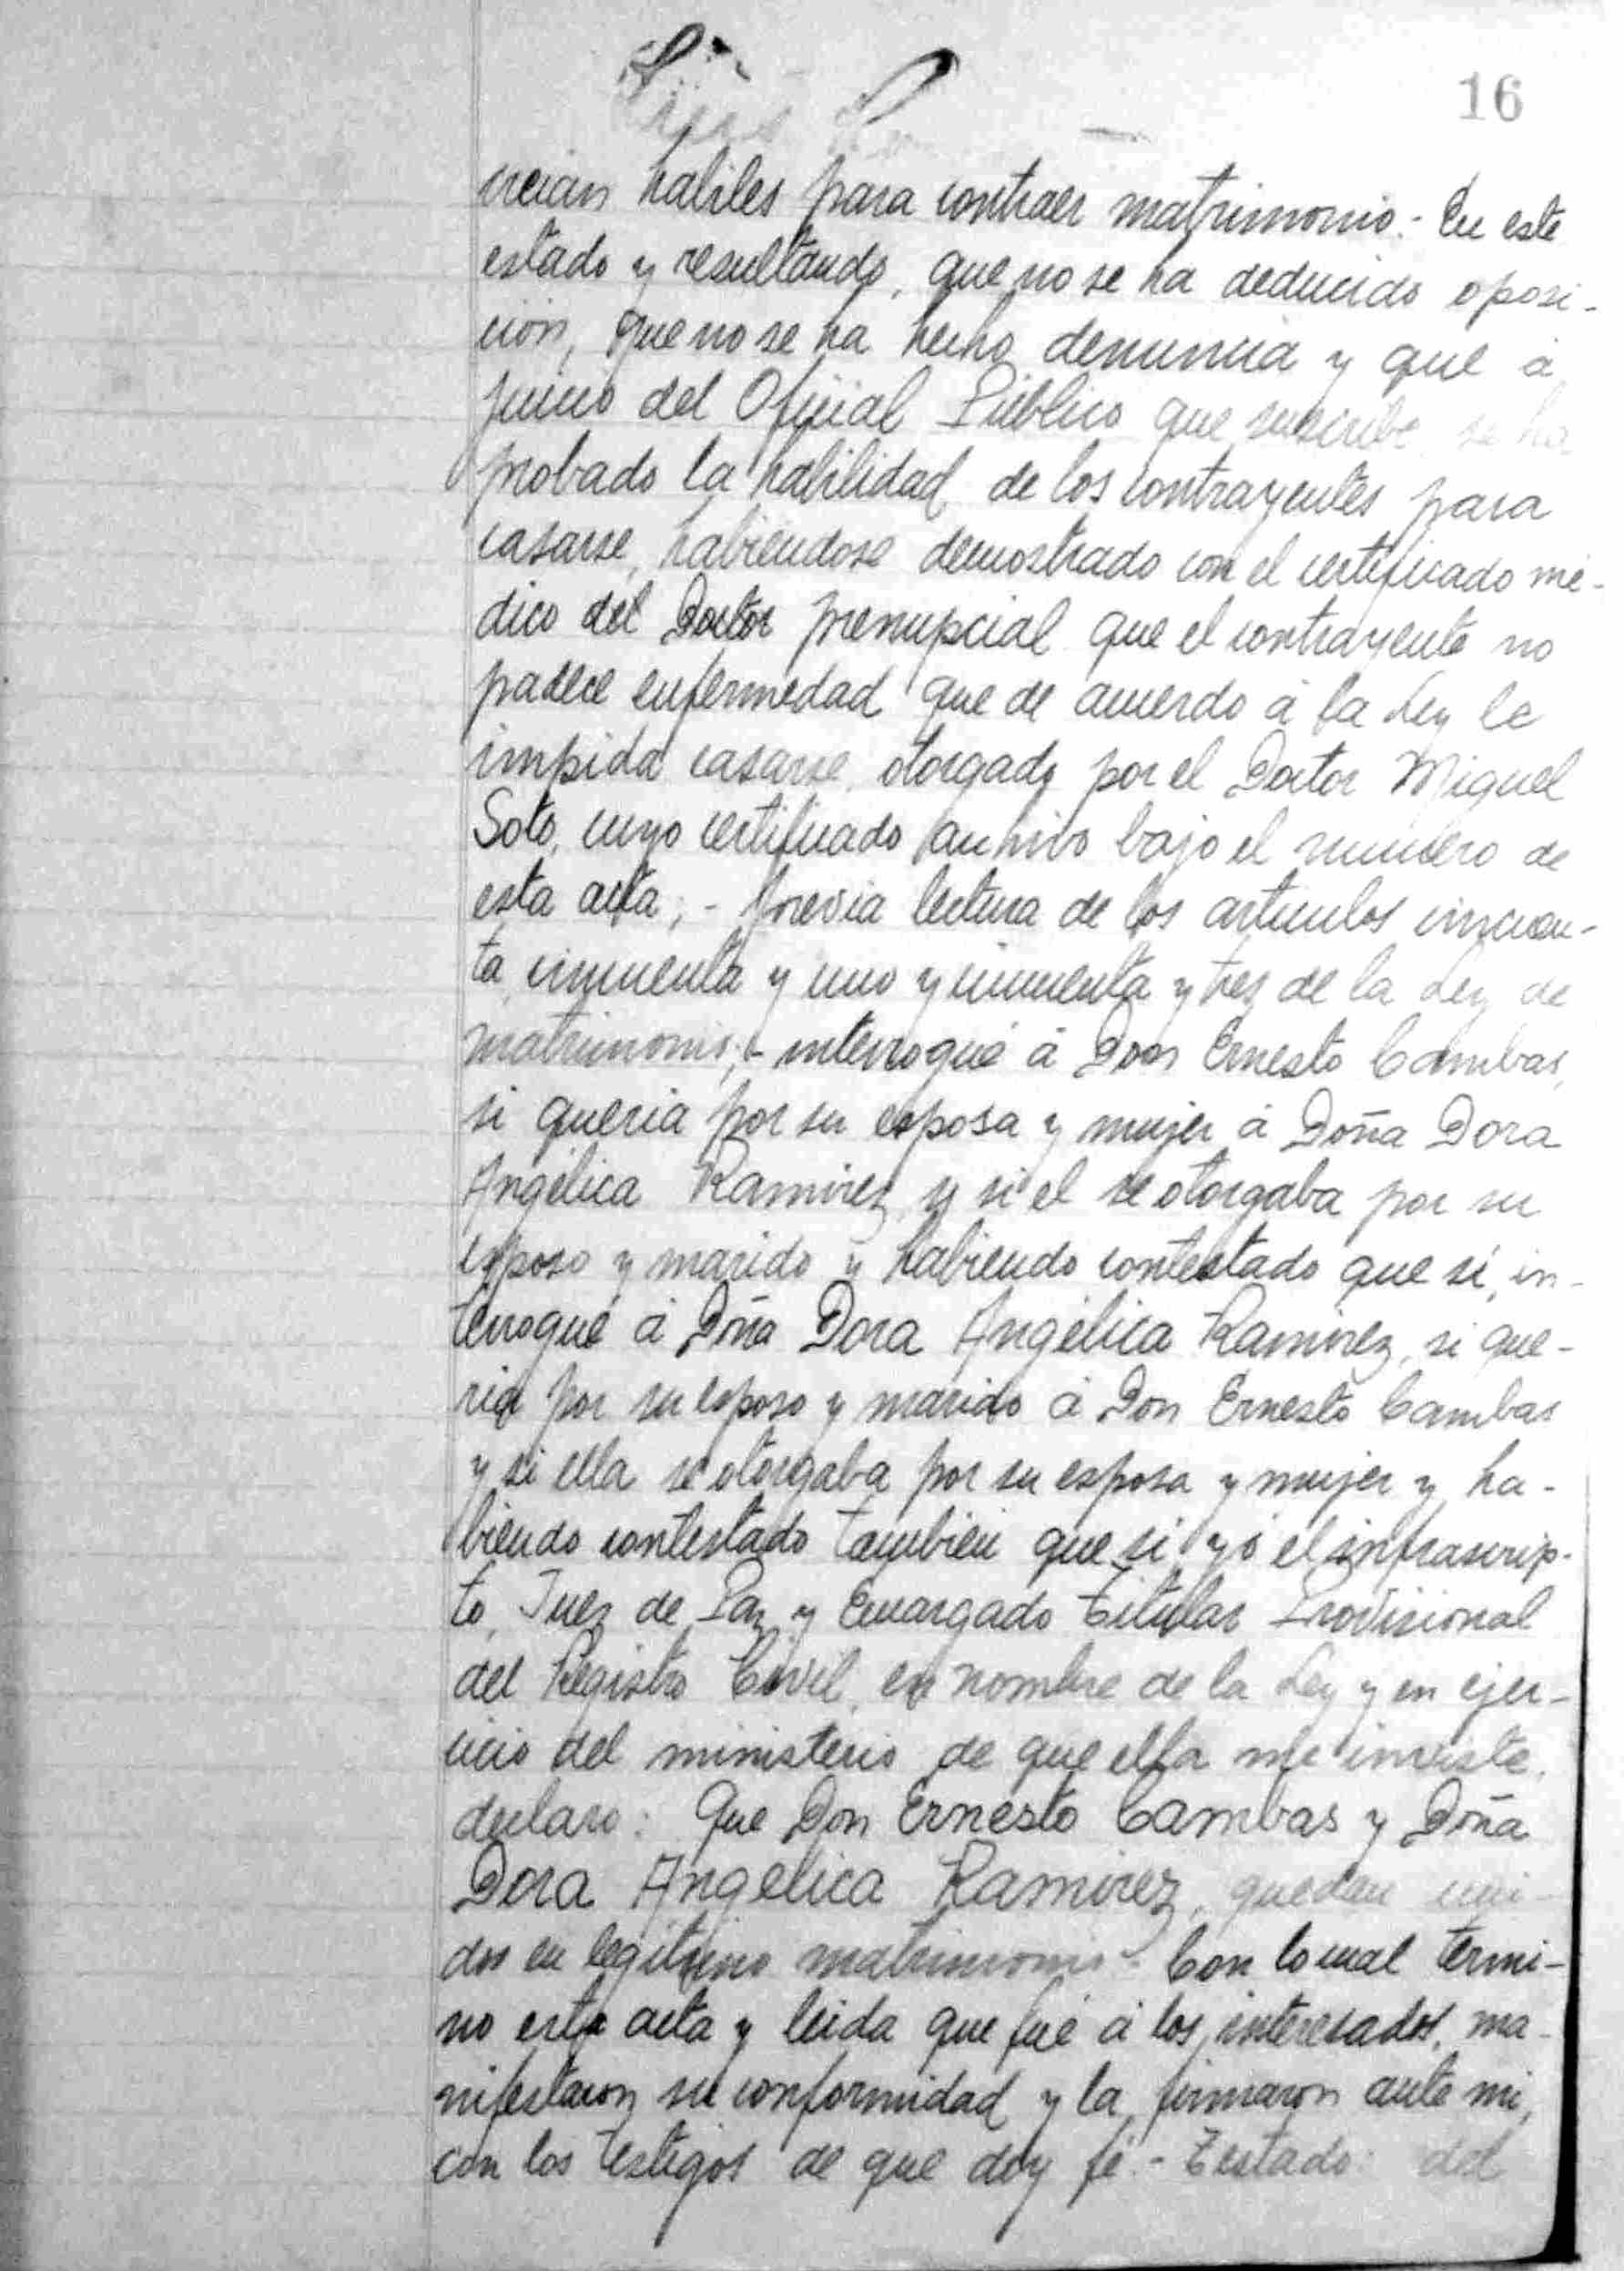 16
creian habiles para contraer matrimonio.- En este
estado y resultando, que no se ha deducido oposi-
ción, que no se ha hecho denuncia y que á
juicio del Oficial Público que suscribe se ha
probado la habilidad de los contrayentes para
casarse, habiéndose demostrado con el certificado mé-
dico del Doctor prenupcial que el contrayente no
padece enfermedad que de acuerdo á la Ley le
impida casarse, otorgado por el Doctor Miguel
Soto, cuyo certificado archivo bajo el numero de
esta acta;- previa lectura de los articulos cincuen-
ta, cincuenta y uno y cincuenta y tres de la Ley de
matrimonio;- interrogué á Don Ernesto Cambas,
si queria por su esposa y mujer á Doña Dora
Angélica Ramirez y si el se otorgaba por su
esposo y marido y habiendo contestado que sí, in-
terrogué á Doña Dora Angélica Ramirez, si que-
ria por su esposo y marido á Don Ernesto Cambas
y si ella se otorgaba por su esposa y mujer y ha-
biendo contestado tambien que si yó el infrascrip-
to, Juez de Paz y Encargado Titular Provisional
del Registro Civil, en nombre de la Ley y en ejer-
cicio del ministerio de que ella me inviste,
declaro: Que Don Ernesto Cambas y Doña
Dora Angelica Ramirez, quedan uni-
dos en legitimo matrimonio.- Con lo cual termi-
no esta acta y leida que fué á los interesados, ma-
nifestaron su conformidad y la firmaron ante mi,
con los testigos de que doy fé.- Testado: del